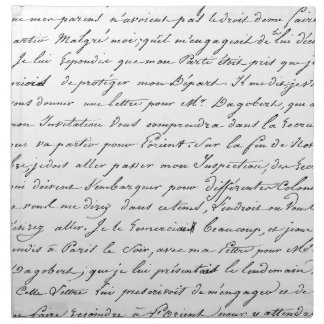 mon parent n'avoient pas le droit de me Faire
partir Malgré moi; qu'il m'engageoit de lui
Je lui Repondis que mon Parti étoit pris que
de proteger mon Départ. Il me dit, je
vous donner une lettre pour Mr. Dagobert, que
Invitation Vous comprendra dans la
va partir pour l'orient. Sur la fin de
je dois aller passer mon Inspection, des
qui doivent S'embarquer pour différentes Colonies
voul me direz dans ce tems, L'endroit ou Vous
aller. Je le Remerciai Beaucoup, et je me
rendis à Paris le Soir, avec ma Lettre pour Mr.
Dagobert, que je lui présentai le lendemain.
Cette Lettre lui prescrivoit de m'engager et de
me Faire Rejoindre à L'orient pour y attendre